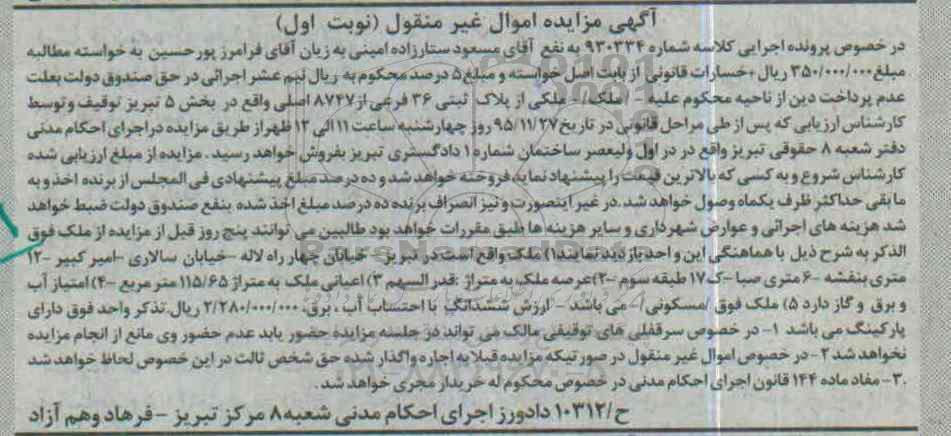 آگهی مزایده اموال غیر منقول (نوبت اول)
در خصوص پرونده اجرایی کلاسه شماره ۹۳۰۳۳۴ به نفع آقای مسعود ستارزاده امینی به زیان آقای فرامرز پورحسین به خواسته مطالبه
مبلغ ۳۵۰/۰۰۰/۰۰۰ ریال +خسارات قانونی از بابت اصل خواسته و مبلغ ۵ درصد محکوم به ریال نیم عشر اجرائی در حق صندوق دولت بعلت
عدم پرداخت دین از ناحیه محکوم علیه - /ملک/- ملکی از پلاک ثبتی ۳۶ فرعی از ۸۷۴۷ اصلی واقع در بخش ۵ تبریز توقیف وتوسط
کارشناس ارزیابی که پس از طی مراحل قانونی در تاریخ ۹۵/۱۱/۲۷ روز چهارشنبه ساعت ۱۱ الی ۱۲ ظهر از طریق مزایده در اجرای احکام مدنی
دفتر شعبه ۸ حقوقی تبریز واقع در در اول ولیعصر ساختمان شماره ۱ دادگستری تبریز بفروش خواهد رسید. مزایده از مبلغ ارزیابی شده
کارشناس شروع و به کسی که بالاترین قیمت را پیشنهاد نماید فروخته خواهد شد و ده درصد مبلغ پیشنهادی فی المجلس از برنده اخذ و به
مابقی حداکثر ظرف یکماه وصول خواهد شد .در غیر اینصورت و نیز انصراف برنده ده درصد مبلغ اخذ شده بنفع صندوق دولت ضبط خواهد
شد هزینه های اجرائی و عوارض شهرداری و سایر هزینه ها طبق مقررات خواهد بود طالبین می توانند پنج روز قبل از مزایده از ملک فوق
الذکر به شرح ذیل با هماهنگی این واحد بازدید نمایند ۱) ملک واقع است در تبریز – خیابان چهار راه لاله –خیابان سالاری –امیر کبیر –۱۲
متری بنفشه –۶ متری صبا –ک ۱۷ طبقه سوم –۲)عرصه ملک به متراژ :قدر السهم ۳) اعیانی ملک به متراژ ۱۱۵/۶۵ متر مربع –۴) امتیاز آب
و برق و گاز دارد ۵) ملک فوق /مسکونی/- می باشد – ارزش ششدانگ با احتساب آب ، برق، ۲/۲۸۰/۰۰۰/۰۰۰ ریال. تذکر واحد فوق دارای
پارکینگ می باشد ۱- در خصوص سرقفلی های توقیفی مالک می تواند در جلسه مزایده حضور یابد عدم حضور وی مانع از انجام مزایده
نخواهد شد ۲- در خصوص اموال غیر منقول در صورتیکه مزایده قبلا به اجاره واگذار شده حق شخص ثالث در این خصوص لحاظ خواهد شد
.۳- مفاد ماده ۱۴۴ قانون اجرای احکام مدنی در خصوص محکوم له خریدار مجری خواهد شد.
ح/۱۰۳۱۲ دادورز اجرای احکام مدنی شعبه ۸ مرکز تبریز –فرهاد وهم آزاد
ParsNamadData